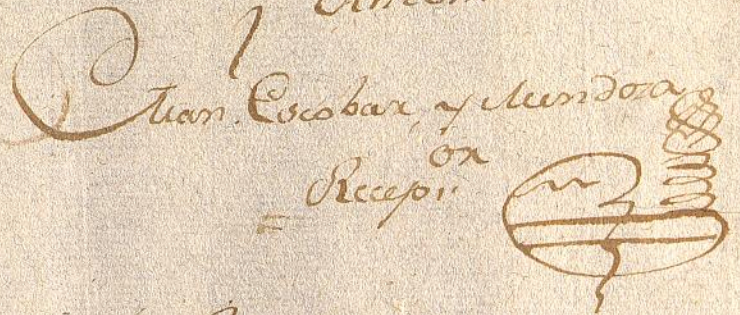 Juan Escobar y Mendoza
Recepr.or